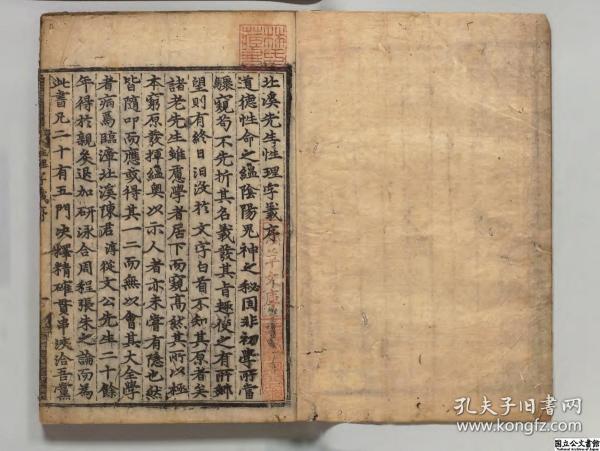 北溪先生性理字義序
道德性命之蘊陰陽鬼神之秘固非初學所當
驟窺苟不先析其名義發其旨趣使之有所鄉
望則有終日汨没於文字白首不知其原者矣
諸老先生雖慮學者居下而窺高然其所以極
本窮原發揮蘊奧以示人者亦未嘗有隱也然
皆隨叩而應或得其一二而無以會其大全學
者病焉臨漳北溪陳君淳從文公先生二十餘
年得於親炙退加研泳合周程張朱之論而為
此書凡二十有五門决擇精確貫串浹洽吾黨
孔夫子旧书网
www.kongfz.com
国立公文書館
National Archives of Japan